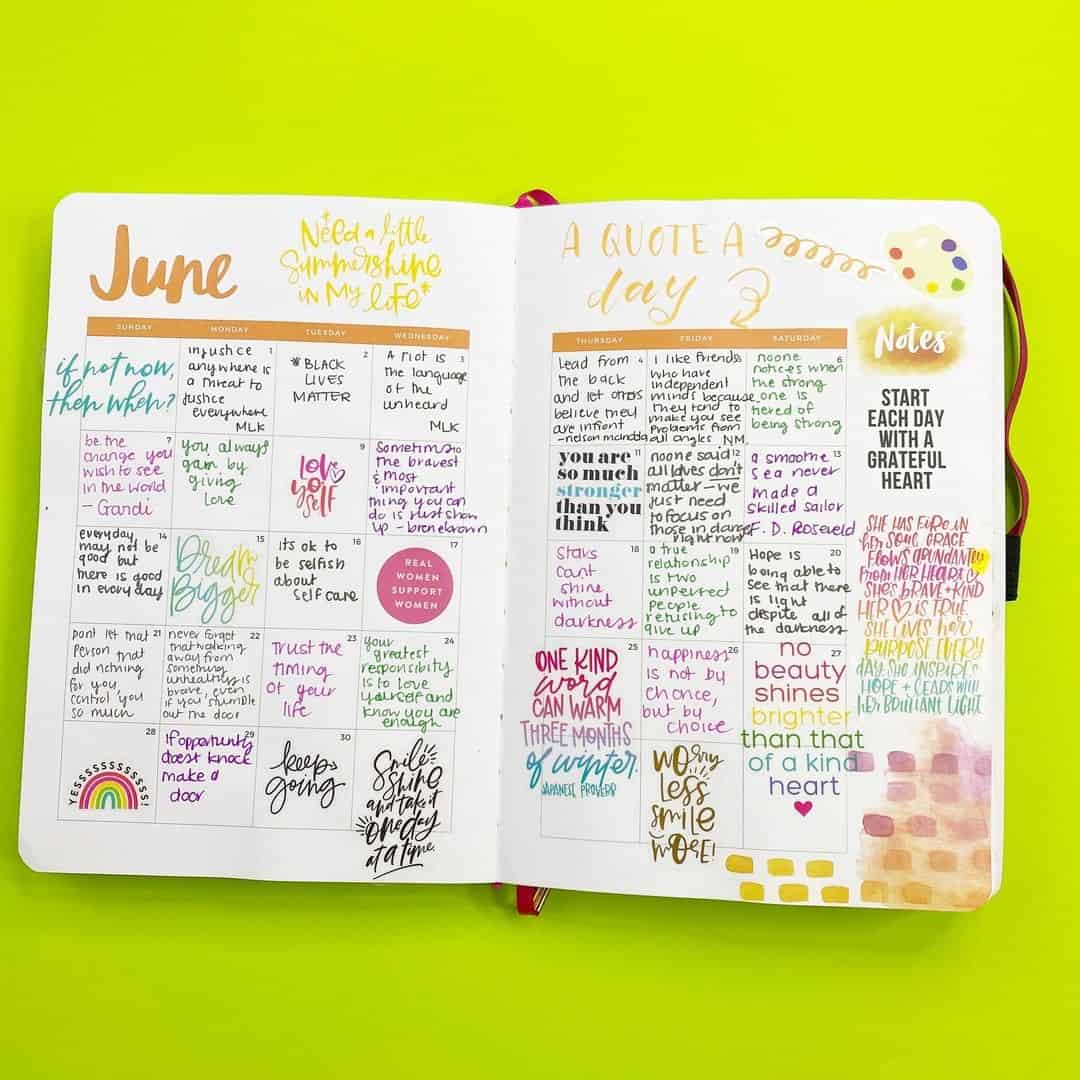 June
*Need a little
Summershine
in My life*
SUNDAY
MONDAY
TUESDAY
WEDNESDAY
if not now,
then when?
1
injustice
anywhere is
a threat to
justice
everywhere
MLK
2
*BLACK
LIVES
MATTER
3
A riot is
the language
of the
unheard
MLK
7
be the
change you
wish to see
in the world
- Gandi
8
you always
gain by
giving
love
9
love
yo self
Sometimes
the bravest
& most
important
thing you can
do is just show
up - brene brown
14
everyday
may not be
good but
there is good
in everyday
15
Dream
Bigger
16
its ok to
be selfish
about
self care
17
REAL
WOMEN
SUPPORT
WOMEN
21
Dont let that
person that
did nothing
for you,
control you
so much
22
never forget
that walking
away from
something
unhealthy is
brave, even
if you stumble
out the door
23
Trust the
timing
of your
life
24
your
greatest
responsibity
is to love
yourself and
know you are
enough
28
YESSSSSSSSSSS!
29
if opportunity
doesnt knock
make a
door
30
keep
going
Smile
shine
and take it
one day
at a time.
A QUOTE A
day
THURSDAY
FRIDAY
SATURDAY
4
Lead from
the back
and let others
believe they
are infront
-nelson mandela
I like friends
who have
independent
minds because
they tend to
make you see
problems from
all angles NM.
6
noone
notices when
the strong
one is
tiered of
being strong
11
you are
so much
stronger
than you
think
12
noone said
all loves don't
matter - we
just need
to focus on
those in danger
right now
13
a smoothe
sea never
made a
skilled sailor
F. D. Roseveld
18
Stars
cant
shine
without
darkness
19
a true
relationship
is two
unperfect
people
refusing to
give up
20
Hope is
being able to
see that there
is light
despite all of
the darkness
25
ONE KIND
word
CAN WARM
THREE MONTHS
of winter.
JAPANESE PROVERB
26
happiness
is not by
chance,
but by
choice
27
no
beauty
shines
brighter
than that
of a kind
heart
worry
less
smile
more!
Notes
START
EACH DAY
WITH A
GRATEFUL
HEART
SHE HAS FIRE IN
her SOUL GRACE
FLOWS ABUNDANTLY
from HER HEART
SHE'S BRAVE + KIND
HER ♡ IS TRUE
SHE LIVES her
PURPOSE EVERY
DAY SHE INSPIRES
HOPE + LEADS WITH
her BRILLIANT LIGHT